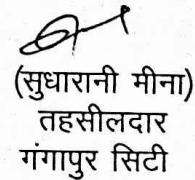 (सुधारानी मीना)
तहसीलदार
गंगापुर सिटी